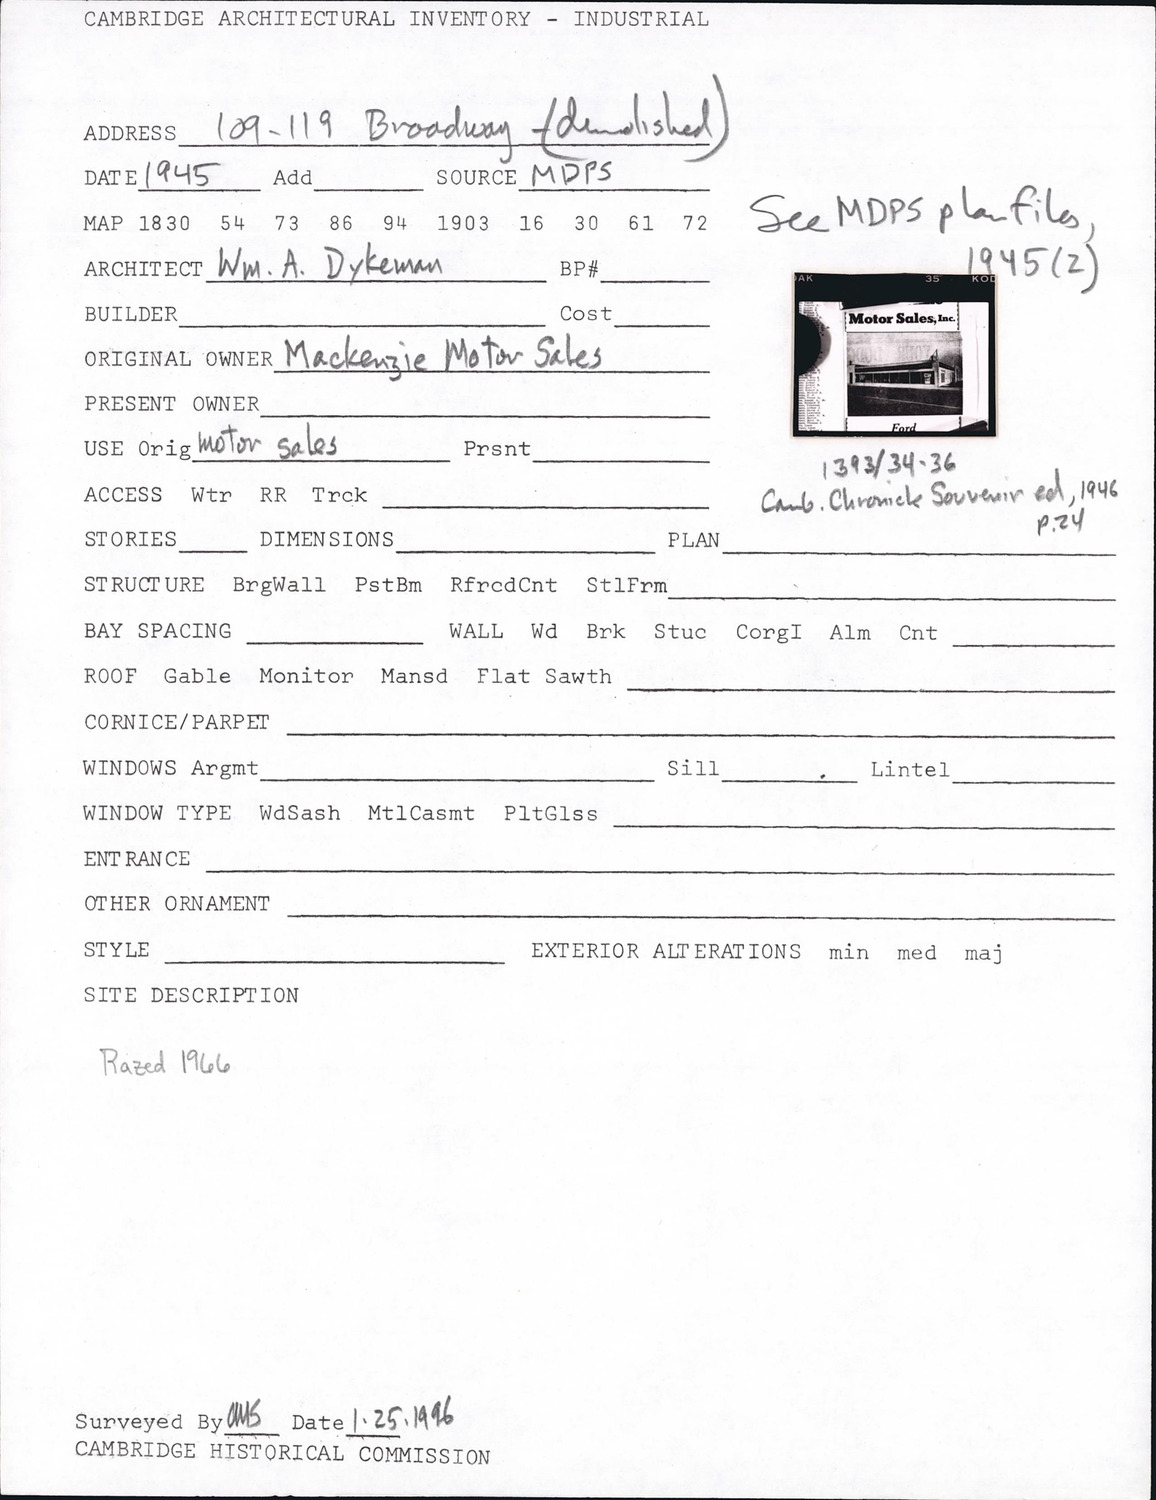 CAMBRIDGE ARCHITECTURAL INVENTORY - INDUSTRIAL
ADDRESS 109-119 Broadway (demolished)
DATE 1945 Add SOURCE MDPS
MAP 1830 54 73 86 94 1903 16 30 61 72
See MDPS plan files,
1945 (2)
ARCHITECT Wm. A. Dykeman BP#
BUILDER Cost
ORIGINAL OWNER Mackenzie Motor Sales
PRESENT OWNER
USE Orig motor sales Prsnt
AK 35 KOD
Motor Sales, Inc.
Ford
1393/34-36
Camb. Chronicle Souvenir ed, 1946
p.24
ACCESS Wtr RR Trck
STORIES DIMENSIONS PLAN
STRUCTURE BrgWall PstBm RfrcdCnt StlFrm
BAY SPACING WALL Wd Brk Stuc CorgI Alm Cnt
ROOF Gable Monitor Mansd Flat Sawth
CORNICE/PARPET
WINDOWS Argmt Sill Lintel
WINDOW TYPE WdSash MtlCasmt PltGlss
ENTRANCE
OTHER ORNAMENT
STYLE EXTERIOR ALTERATIONS min med maj
SITE DESCRIPTION
Razed 1966
Surveyed By Date 1.25.1996
CAMBRIDGE HISTORICAL COMMISSION